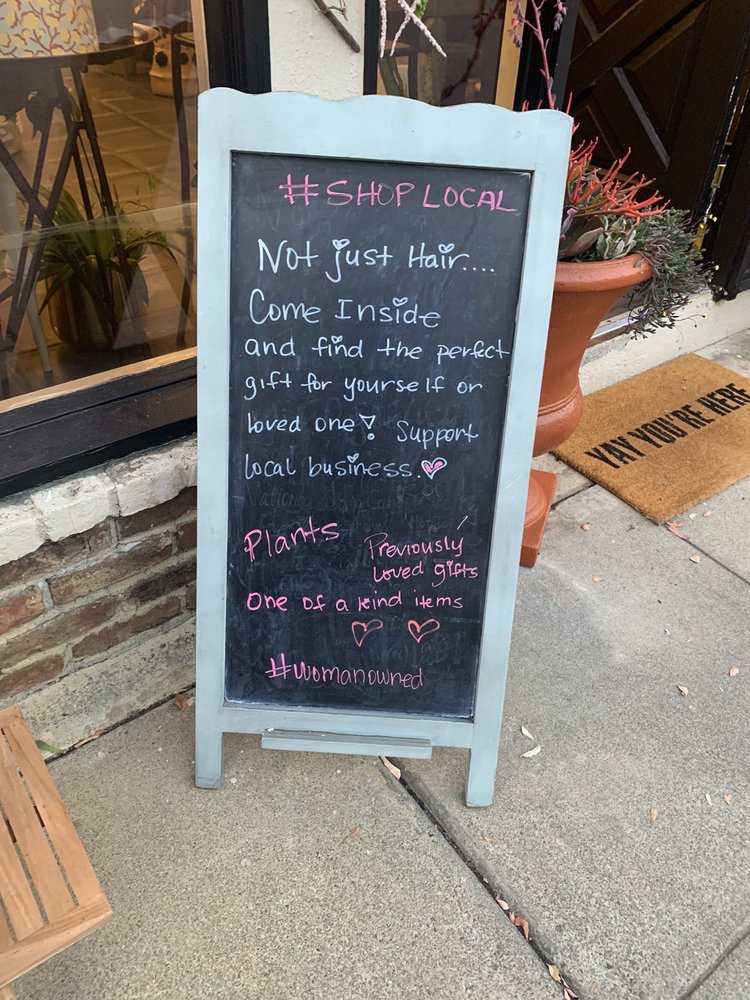 #SHOP LOCAL
Not just Hair....
Come Inside
and find the perfect
gift for yourself or
loved one! Support
local business.
Plants Previously
Loved gifts
One of a kind items
#womanowned
YAY YOU'RE HERE